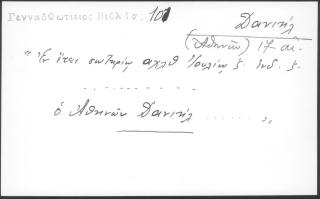 Γενναδ. Φωτίτιος Βιβλ ισ. 101
Δανιήλ
(Ἀθηνῶν) 17 αἰ.
"Ἐν ἔτει σωτηρίῳ αχλθ Ἰουλίῳ ζ. Ἰνδ. ζ.
. . . . . . . . . .
ὁ Ἀθηνῶν Δανιήλ . . . . . "